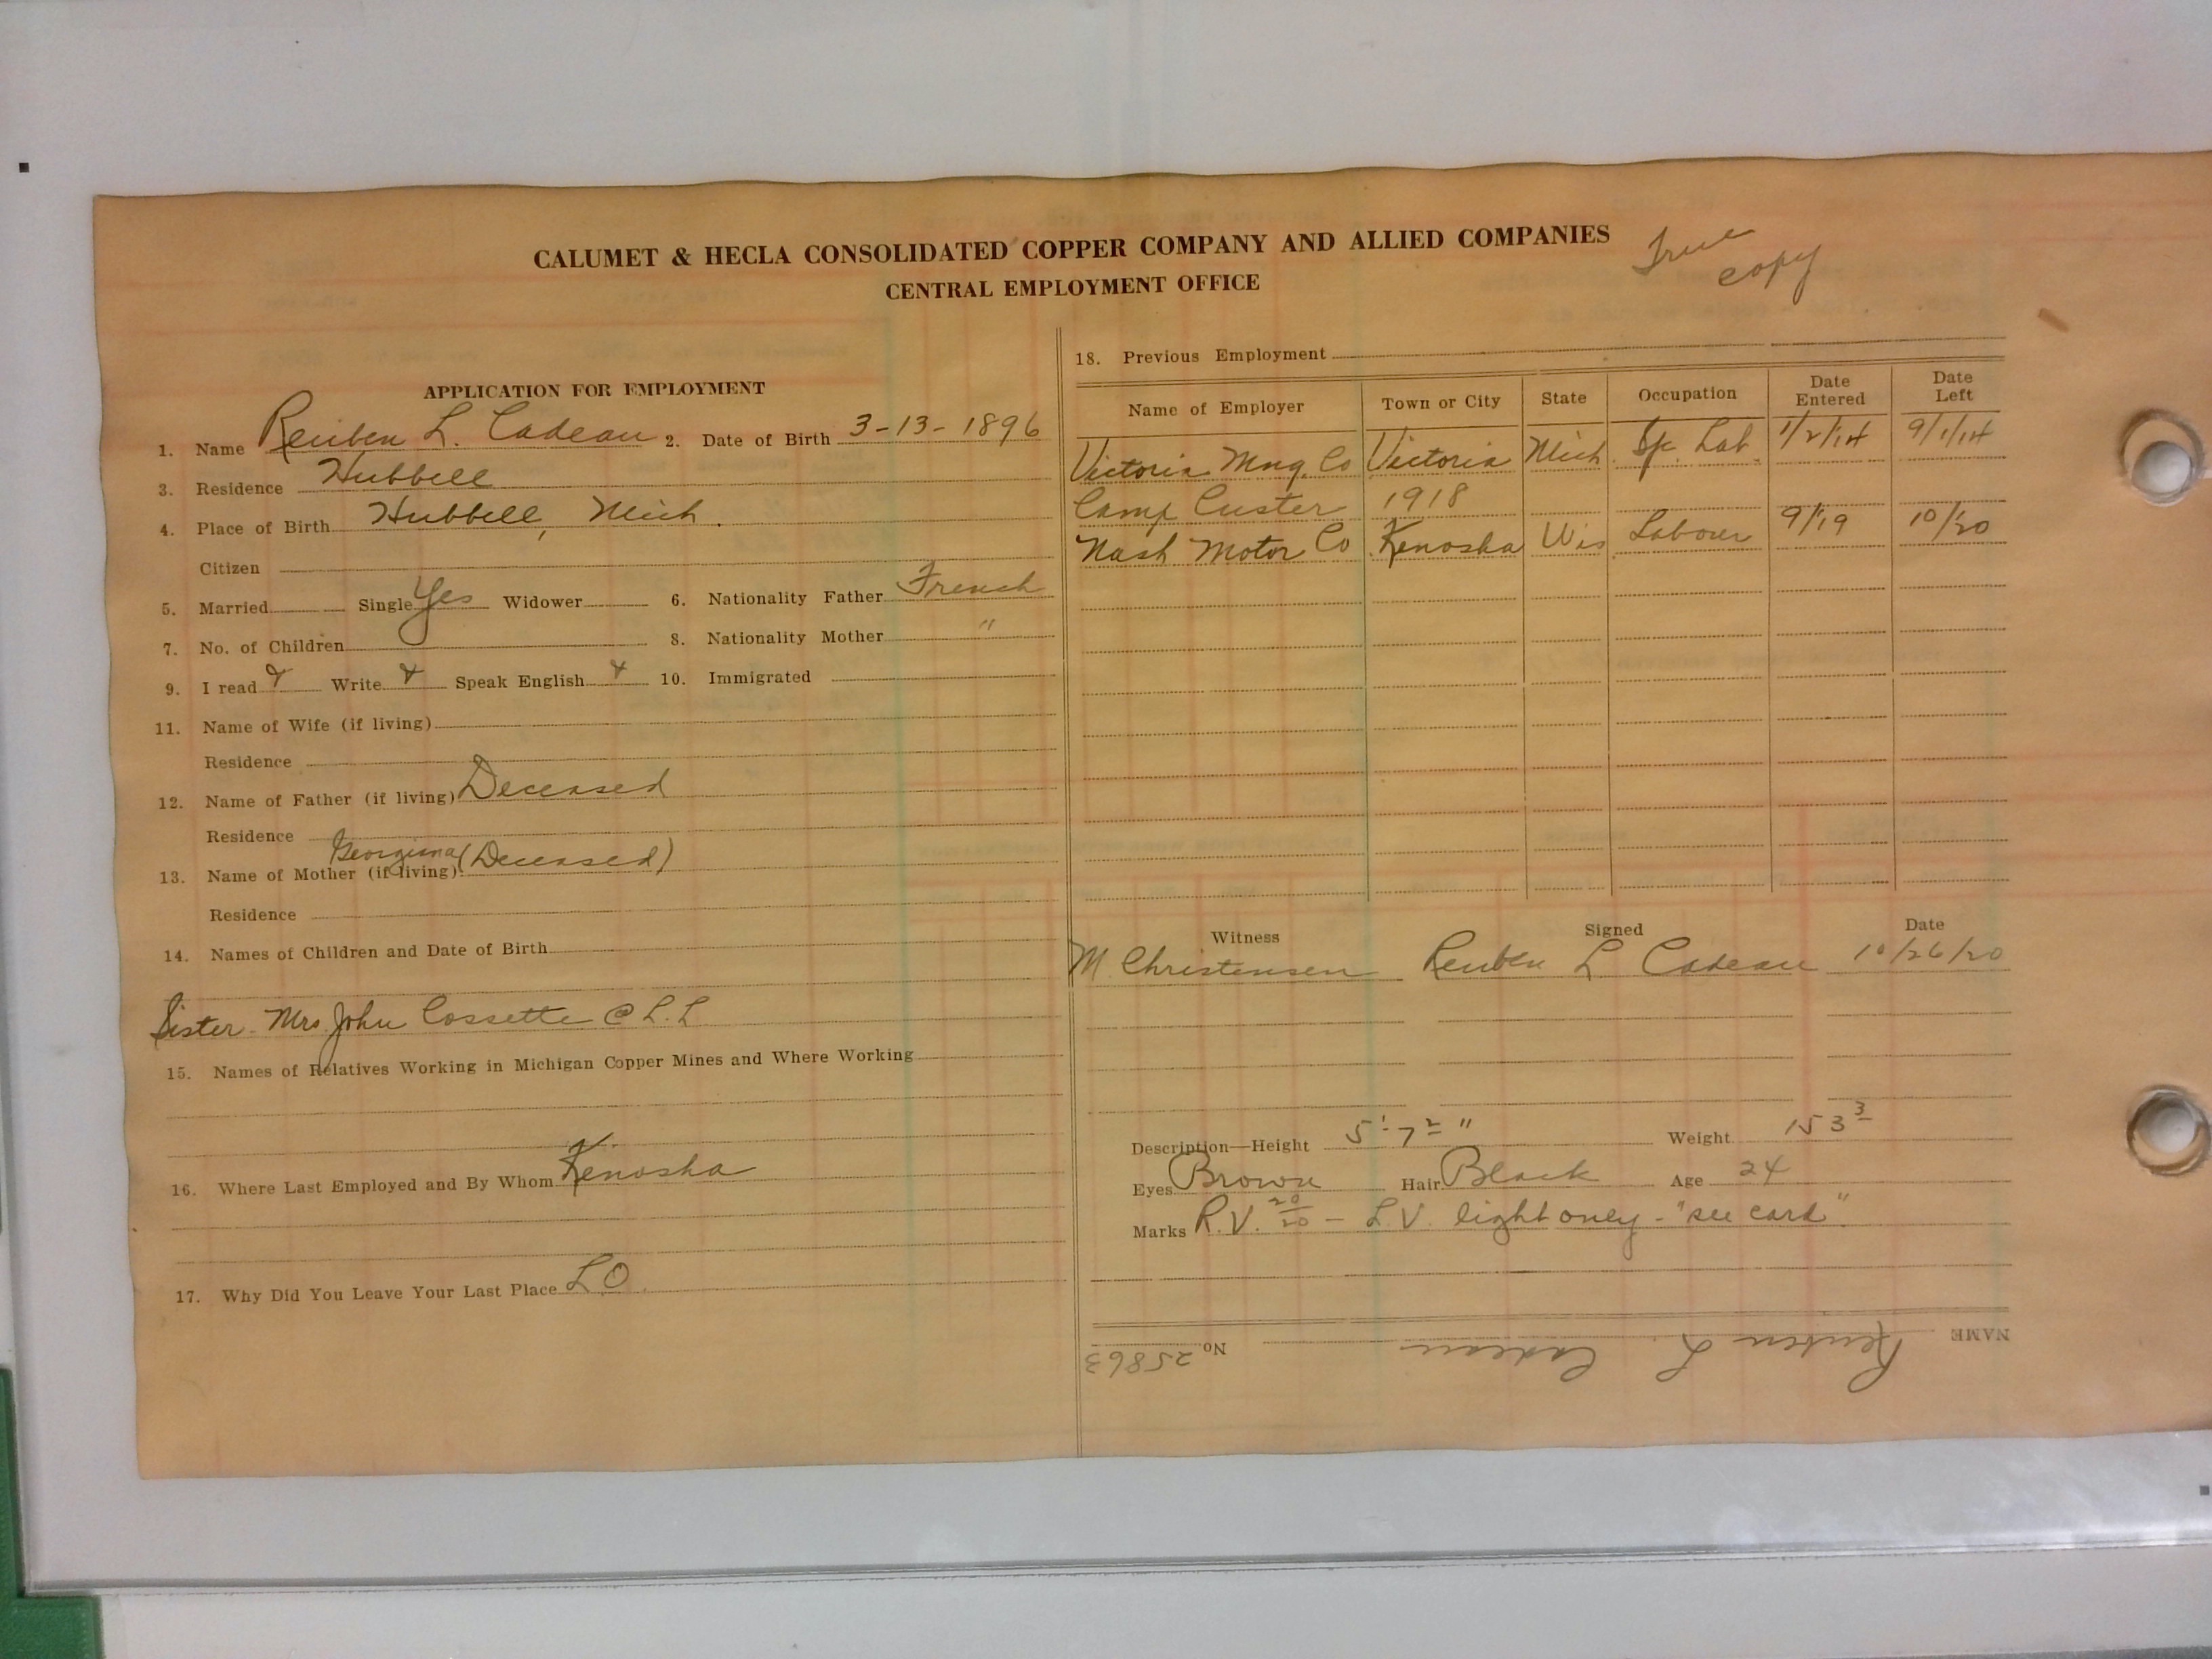 CALUMET & HECLA CONSOLIDATED COPPER COMPANY AND ALLIED COMPANIES
True copy
CENTRAL EMPLOYMENT OFFICE
APPLICATION FOR EMPLOYMENT
1. Name Reuben L. Cadeau 2. Date of Birth 3-13-1896
3. Residence Hubbell
4. Place of Birth Hubbell, Mich.
Citizen
5. Married Single Yes Widower 6. Nationality Father French
7. No. of Children 8. Nationality Mother "
9. I read Write Speak English 10. Immigrated
11. Name of Wife (if living)
Residence
12. Name of Father (if living) Deceased
Residence
13. Name of Mother (if living) Georgiana (Deceased)
Residence
14. Names of Children and Date of Birth
Sister - Mrs John Cossette @ L.L
15. Names of Relatives Working in Michigan Copper Mines and Where Working
16. Where Last Employed and By Whom Kenosha
17. Why Did You Leave Your Last Place L O
18. Previous Employment
Name of Employer Town or City State Occupation Date Entered Date Left
Victoria Mng. Co Victoria Mich. Lab. 1/2/14 9/1/14
Camp Custer 1918
Nash Motor Co Kenosha Wis Labour 9/19 10/20
Witness Signed Date
M Christensen Reuben L Cadeau 10/26/20
Description—Height 5' 7 2 " Weight 153 3
Eyes Brown Hair Black Age 24
Marks R.V. 20/20 - L.V. light only - "see card"
NAME Reuben L. Cadeau No. 25863